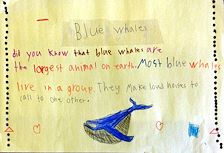 Blue whales
did you know that blue whales are
the largest animal on earth. Most blue whales
live in a group. They make loud noises to
call to one other.